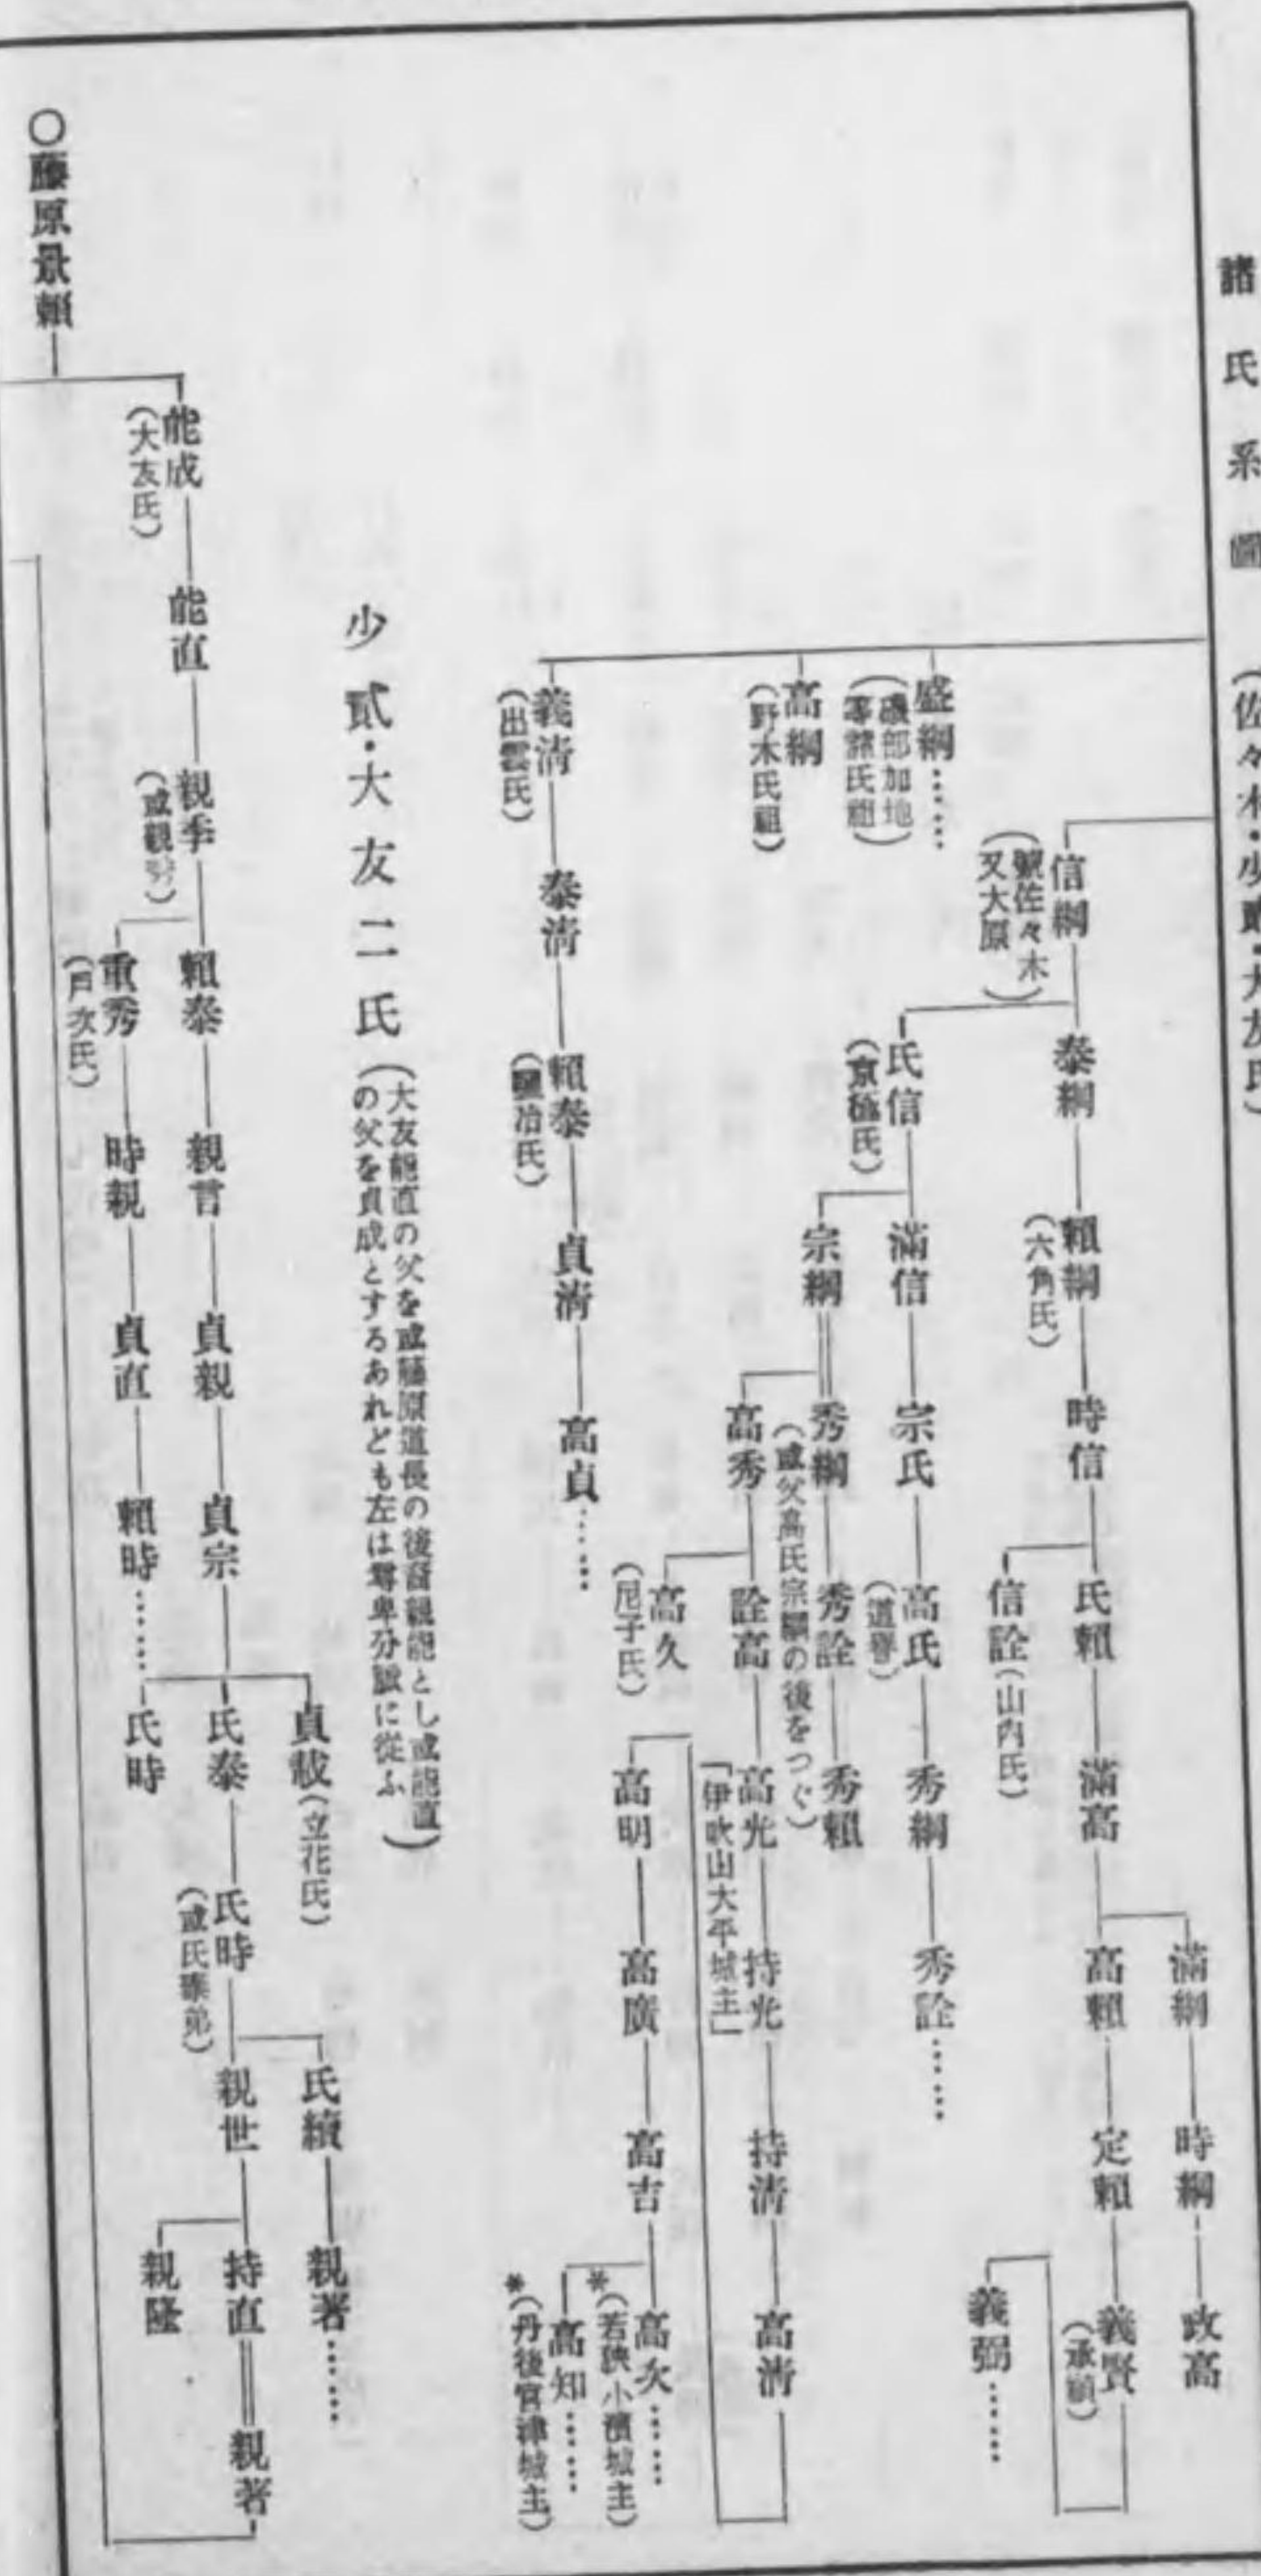 諸氏系圖 (佐々木・少貳・大友氏)
信綱 (號佐々木又大原) 泰綱 賴綱 (六角氏) 時信 氏賴 滿高 滿綱 時綱 政高
高賴 定賴 義賢 (承禎) 義弼……
信詮 (山內氏)
氏信 (京極氏) 滿信 宗氏 高氏 (道譽) 秀綱 秀詮……
宗綱 秀綱 秀詮 秀賴
(或父高氏宗綱の後をつぐ)
高秀 詮高 高光 持光 持清 高清
「伊吹山大平城主」
高久 (尼子氏)
高明 高廣 高吉 高次……
*(若狹小濱城主)
高知……
*(丹後宮津城主)
盛綱……
(磯部加地等諸氏祖)
高綱
(野木氏祖)
義淸 (出雲氏) 泰淸 賴泰 (鹽冶氏) 貞淸 高貞……
少貳・大友二氏 (大友能直の父を或藤原道長の後裔親能とし或能直
の父を貞成とするあれども左は尊卑分脈に從ふ)
○藤原景賴
能成 (大友氏) 能直 親季 (或親秀) 賴泰 親言 貞親 貞宗
貞載 (立花氏)
氏泰 氏時 (或氏泰弟) 氏續 親著……
親世 持直 親著
親隆
氏時
重秀 (戶次氏) 時親 貞直 賴時……